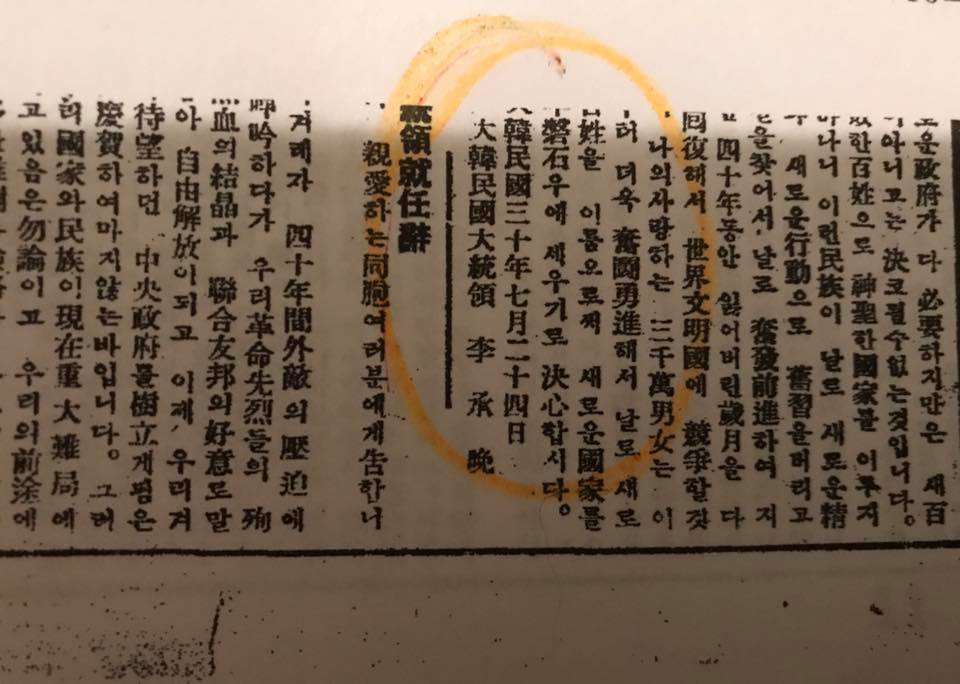 로운政府가 다 必要하지만은 새百
이아니고는 決코될수없는것입니다。
敗한百姓으로 神聖한國家를 이루지
하나니 이런民族이 날로 새로운精
새로운行動으로 舊習을버리고
을찾어서 날로 奮發前進하여 지
四十年동안 잃어버린歲月을 다
回復해서 世界文明國에 競爭할것
나의사랑하는 三千萬男女는 이
더욱 奮鬪勇進해서 날로 새로
百姓을 이룸으로써 새로운國家를
磐石우에 세우기로 決心합시다。
大韓民國三十年七月二十四日
大韓民國大統領 李承晩
統領就任辭
親愛하는同胞여러분에게告합니
겨레가 四十年間外敵의 壓迫에
呻吟하다가 우리革命先烈들의 殉
血의結晶과 聯合友邦의好意로말
아 自由解放이되고 이제 우리겨
待望하던 中央政府를樹立게됨은
慶賀하여마지않는바입니다。 그러
國家와民族이現在重大難局에
고있음은勿論이고 우리의前途에